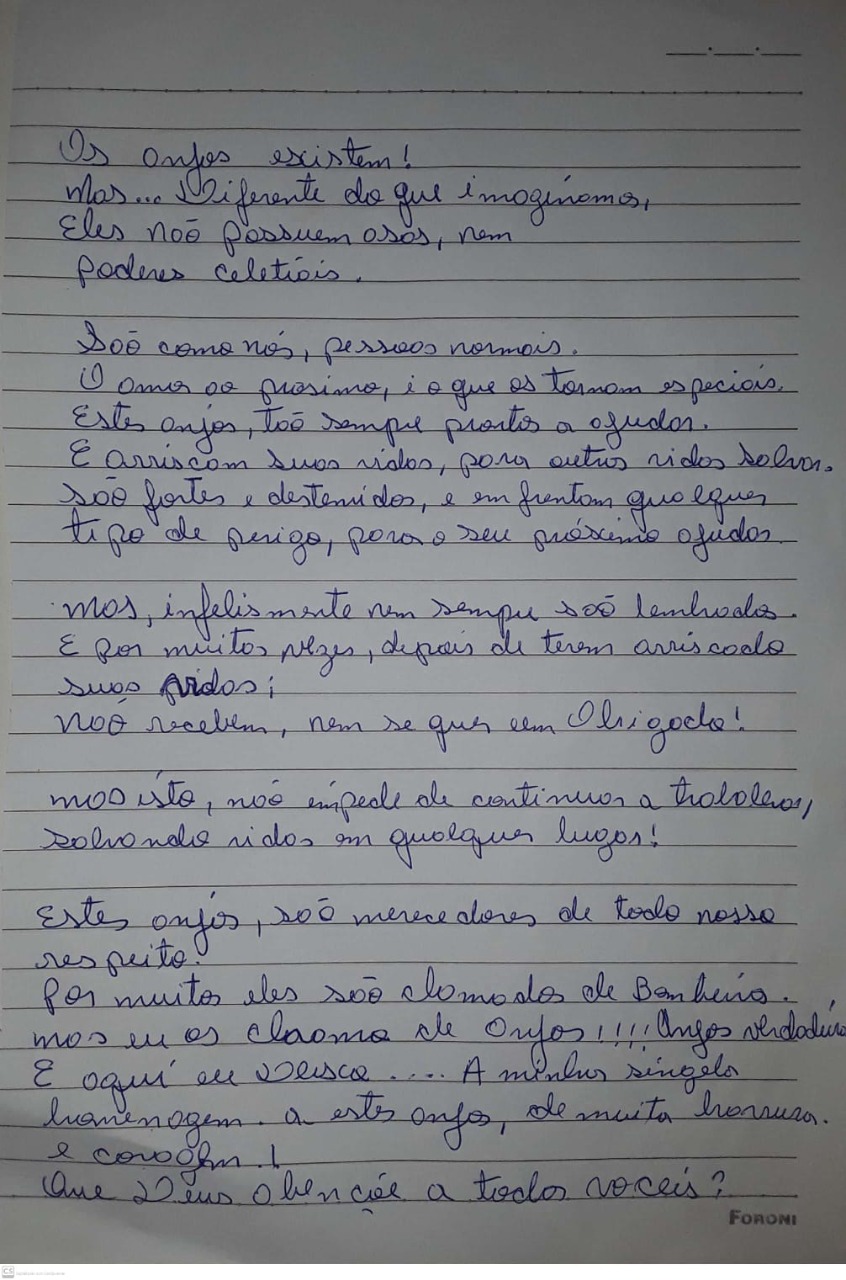 Os anjos existem!
Mas... Diferente do que imaginamos,
Eles não possuem asas, nem
poderes celetiais.
São como nós, pessoas normais.
O amor ao prosimo, é o que os tornam especiais.
Estes anjos, tão sempre prontos a ajudar.
E arriscam suas vidas, para outras vidas salvar.
são fortes e destemidos, e em frentam qualquer
tipo de perigo, para o seu próximo ajudar
mas, infelismente nem sempre são lembrados.
E por muitas vezes, depois de terem arriscado
suas vidas;
não recebem, nem se quer um Obrigado!
mas isto, não empede de continuar a trabalhar,
salvando vidas em qualquer lugar!
Estes anjos, são merecedores de todo nosso
respeito.
Por muitos eles são clamados de Bombeiro.
mas eu os chamo de Anjos!!!! Anjos verdadeiro
E aquí eu Deixo .... A minha singela
homenagem. a estes anjos, de muita
e coragem!
Que Deus abençõe a todos voceis?
FORONI